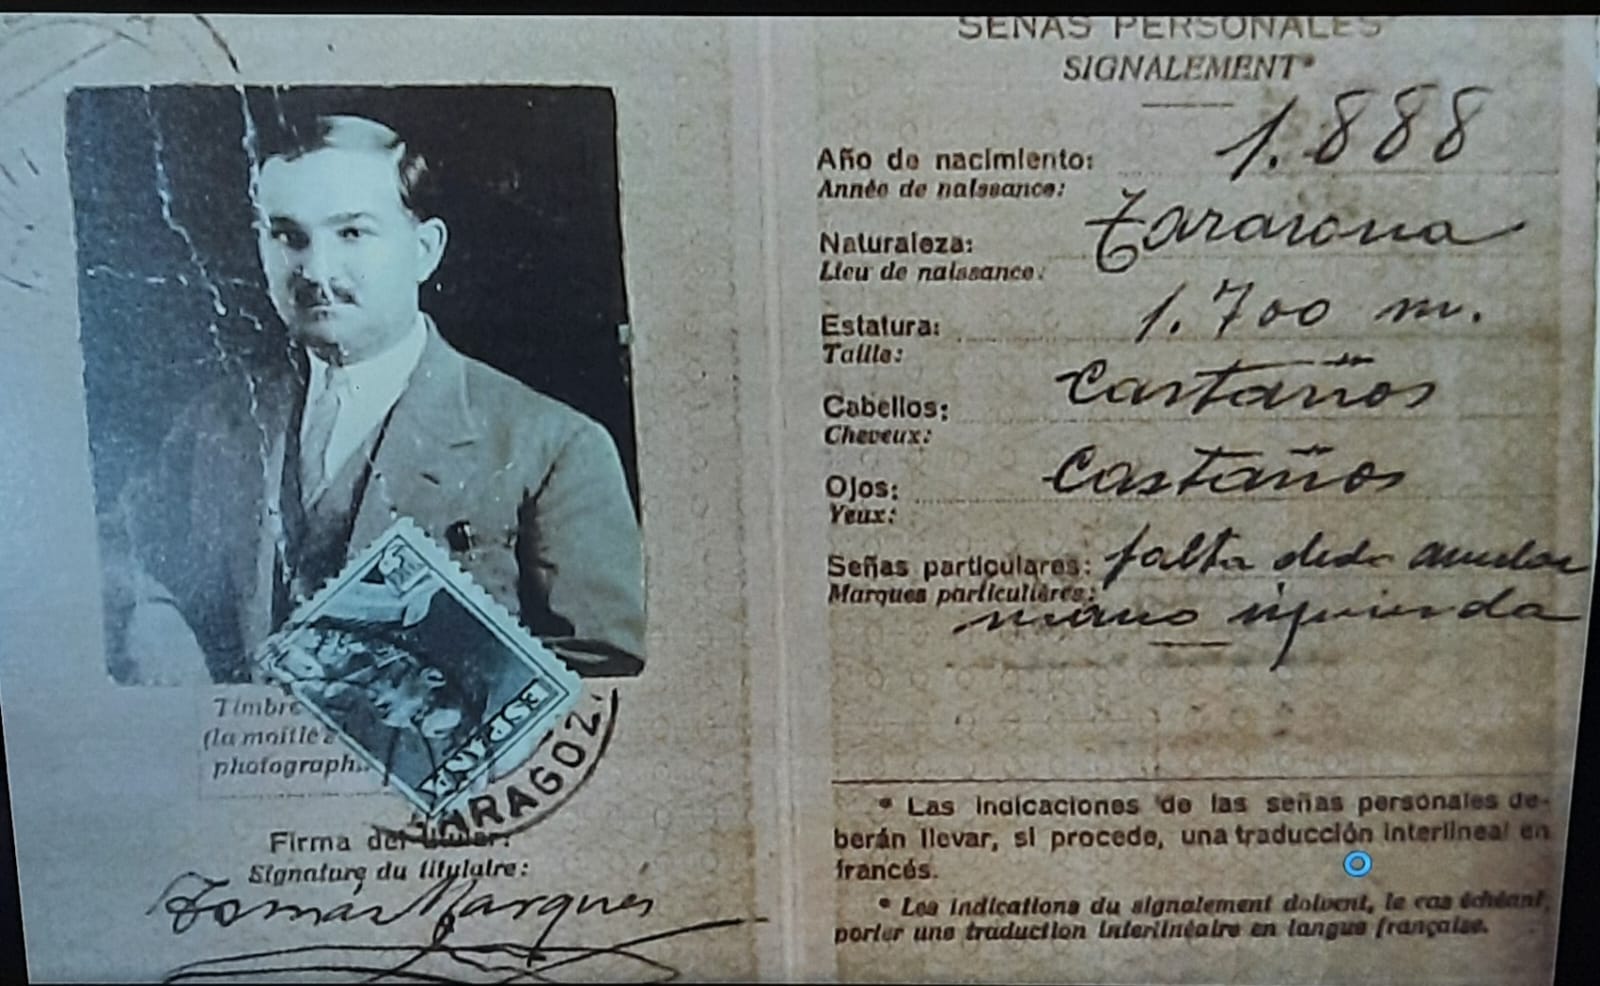 SEÑAS PERSONALES
SIGNALEMENT*
1.888
Año de nacimiento:
Année de naissance:
Tararona
Naturaleza:
Lieu de naissance:
1.700 m.
Estatura:
Taille:
Castaños
Cabellos:
Cheveux:
Castaños
Ojos:
Yeux:
Señas particulares: falta dedo anular
Marques particulières:
mano izquierda
ESPAÑA
Timbre
(la moitié
photograph
ARAGOZ
Firma del titular:
Signature du titulaire:
Tomás Marques
* Las indicaciones de las señas personales de-
berán llevar, si procede, una traducción interlineal en
francés.
* Les indications du signalement doivent, le cas échéant,
porter une traduction interlinéaire en langue française.